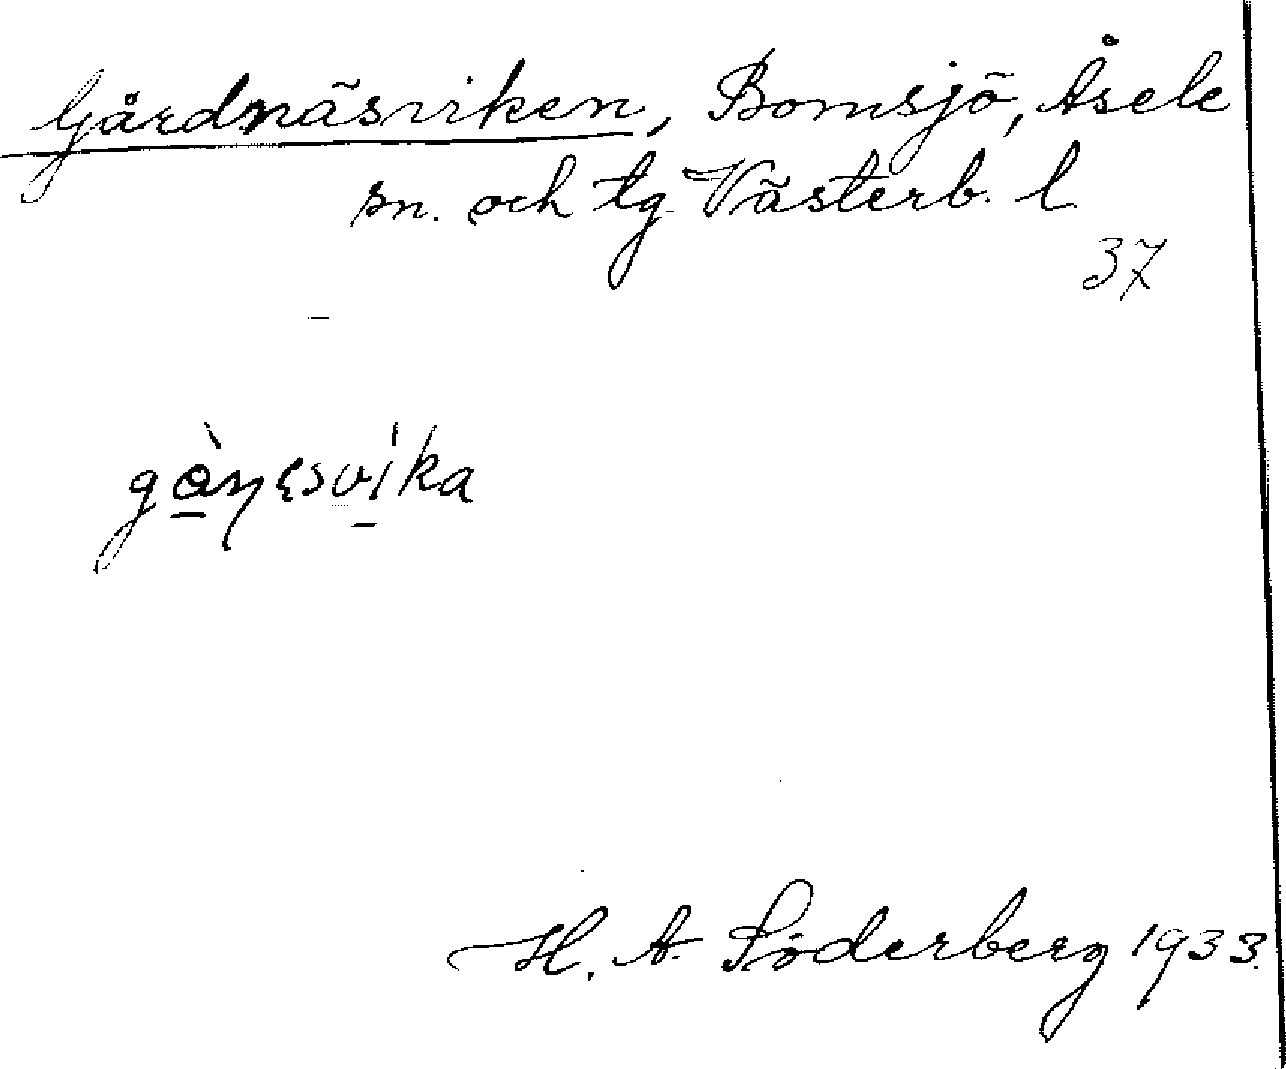 Gårdnäsviken, Bomsjö, Åsele
sn. och tg. Västerb. l.
37
H. A. Söderberg 1933.